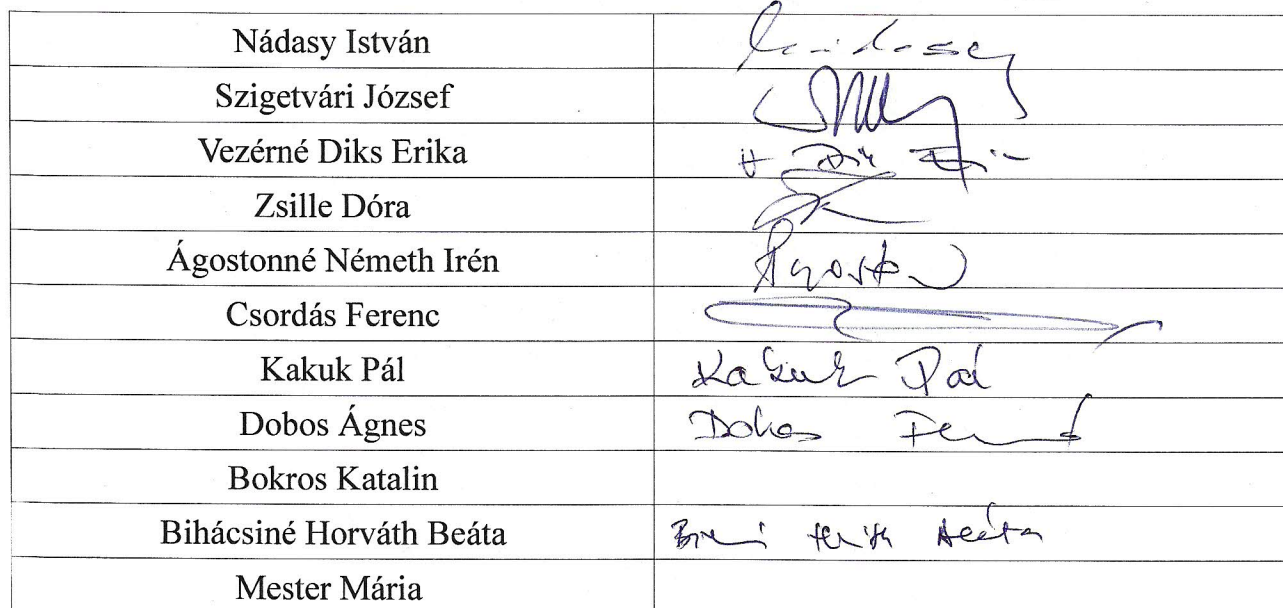 Nádasy István
Szigetvári József
Vezérné Diks Erika
Zsille Dóra
Ágostonné Németh Irén
Csordás Ferenc
Kakuk Pál Kakuk Pál
Dobos Ágnes Dobos
Bokros Katalin
Bihácsiné Horváth Beáta Beáta
Mester Mária